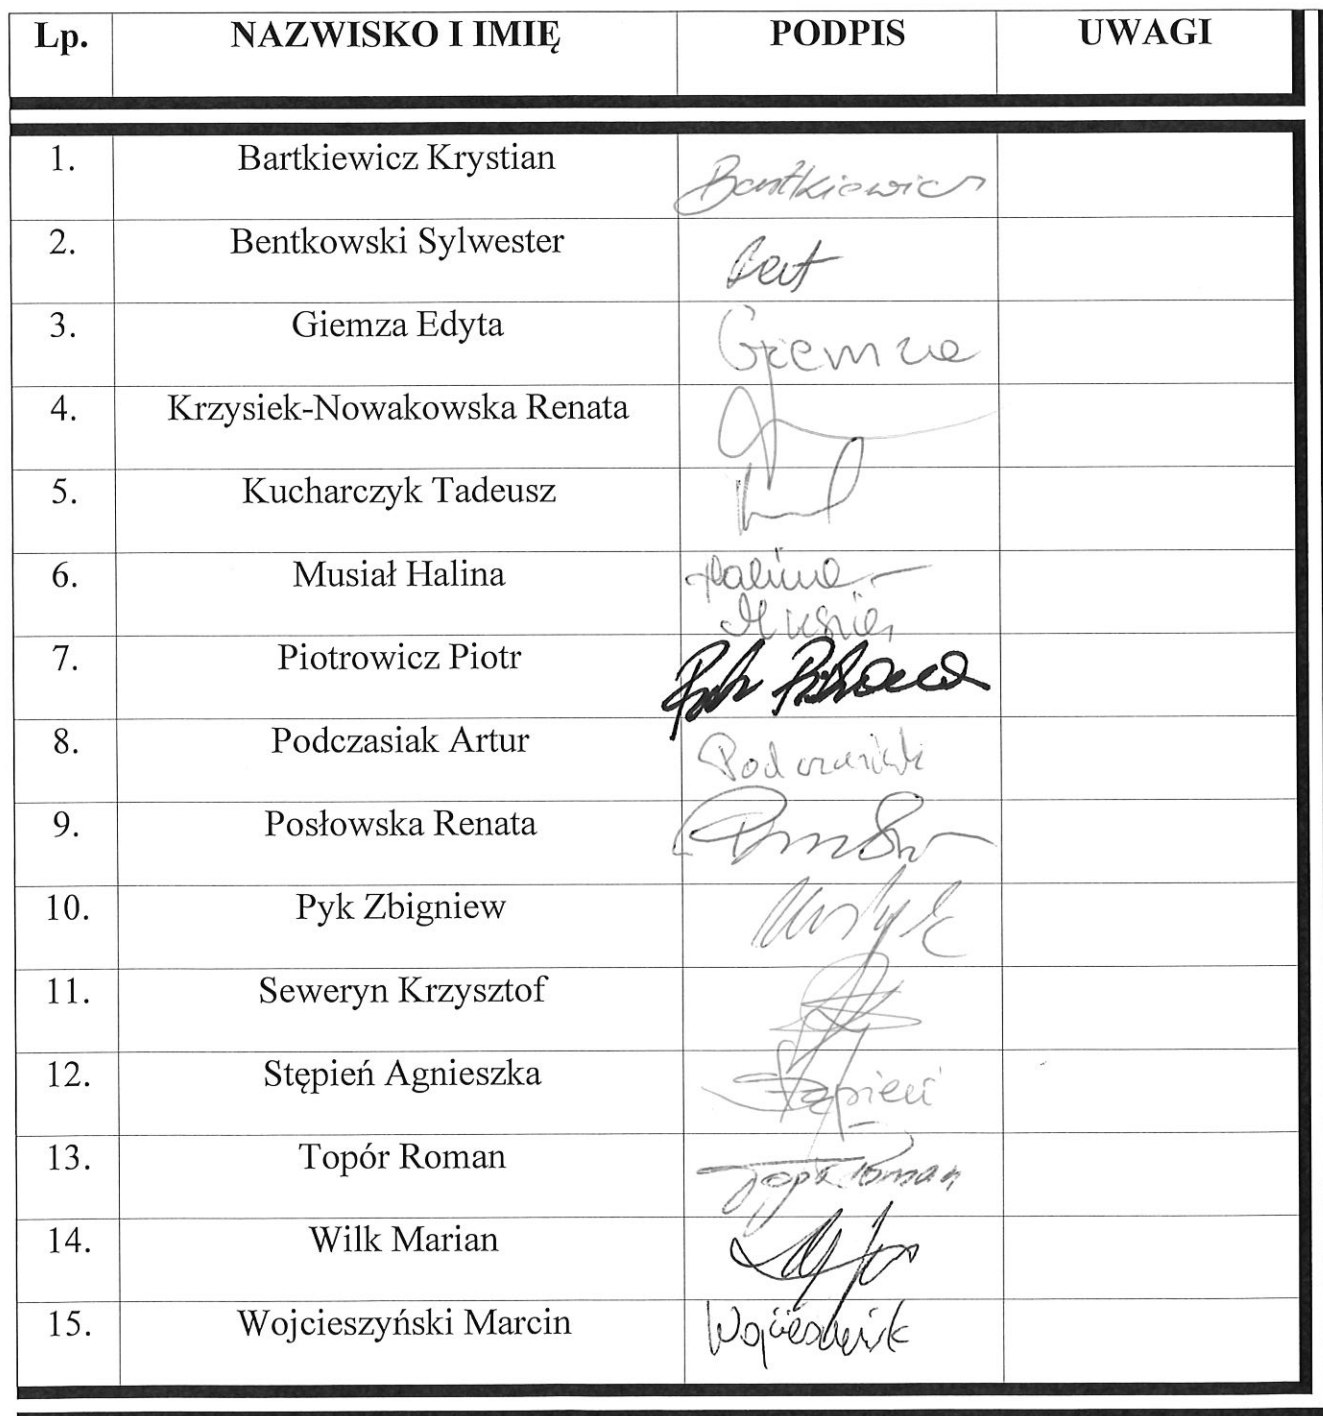 Lp. NAZWISKO I IMIĘ PODPIS UWAGI
1. Bartkiewicz Krystian Bartkiewicz
2. Bentkowski Sylwester
3. Giemza Edyta Giemza
4. Krzysiek-Nowakowska Renata
5. Kucharczyk Tadeusz
6. Musiał Halina Halina
Musiał
7. Piotrowicz Piotr
8. Podczasiak Artur
9. Posłowska Renata
10. Pyk Zbigniew
11. Seweryn Krzysztof
12. Stępień Agnieszka Stępień
13. Topór Roman Topór Roman
14. Wilk Marian
15. Wojcieszyński Marcin